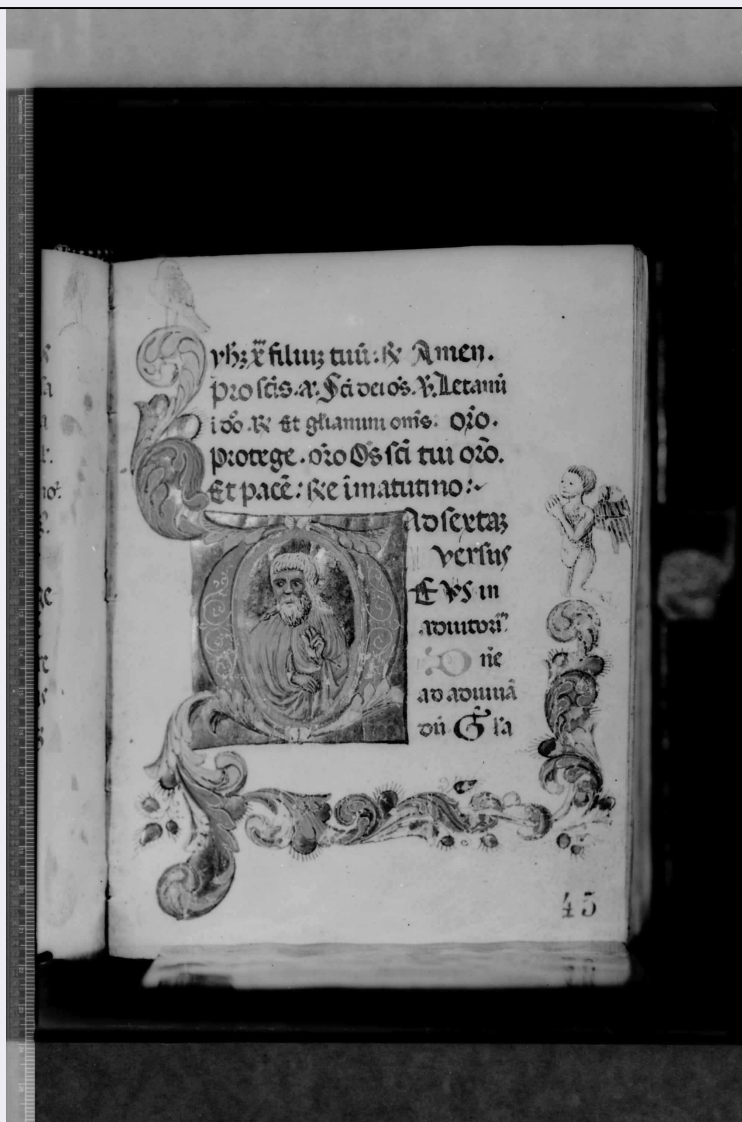 yhz xp̄ filiuz tuū: ℞ Amen.
pro sc̄is. a. Sc̄i dei os̄. ℣. Letamī
i dō. ℞ Et gl̄iamini om̄s. orō.
Protege. orō Os̄ sc̄i tui orō.
Et pacē: ℞e ī matutino:~
Ad sextaz
versus
EVS in
adiutoriū
Dn̄e
ad adiuuā
dū Gl̄a
45